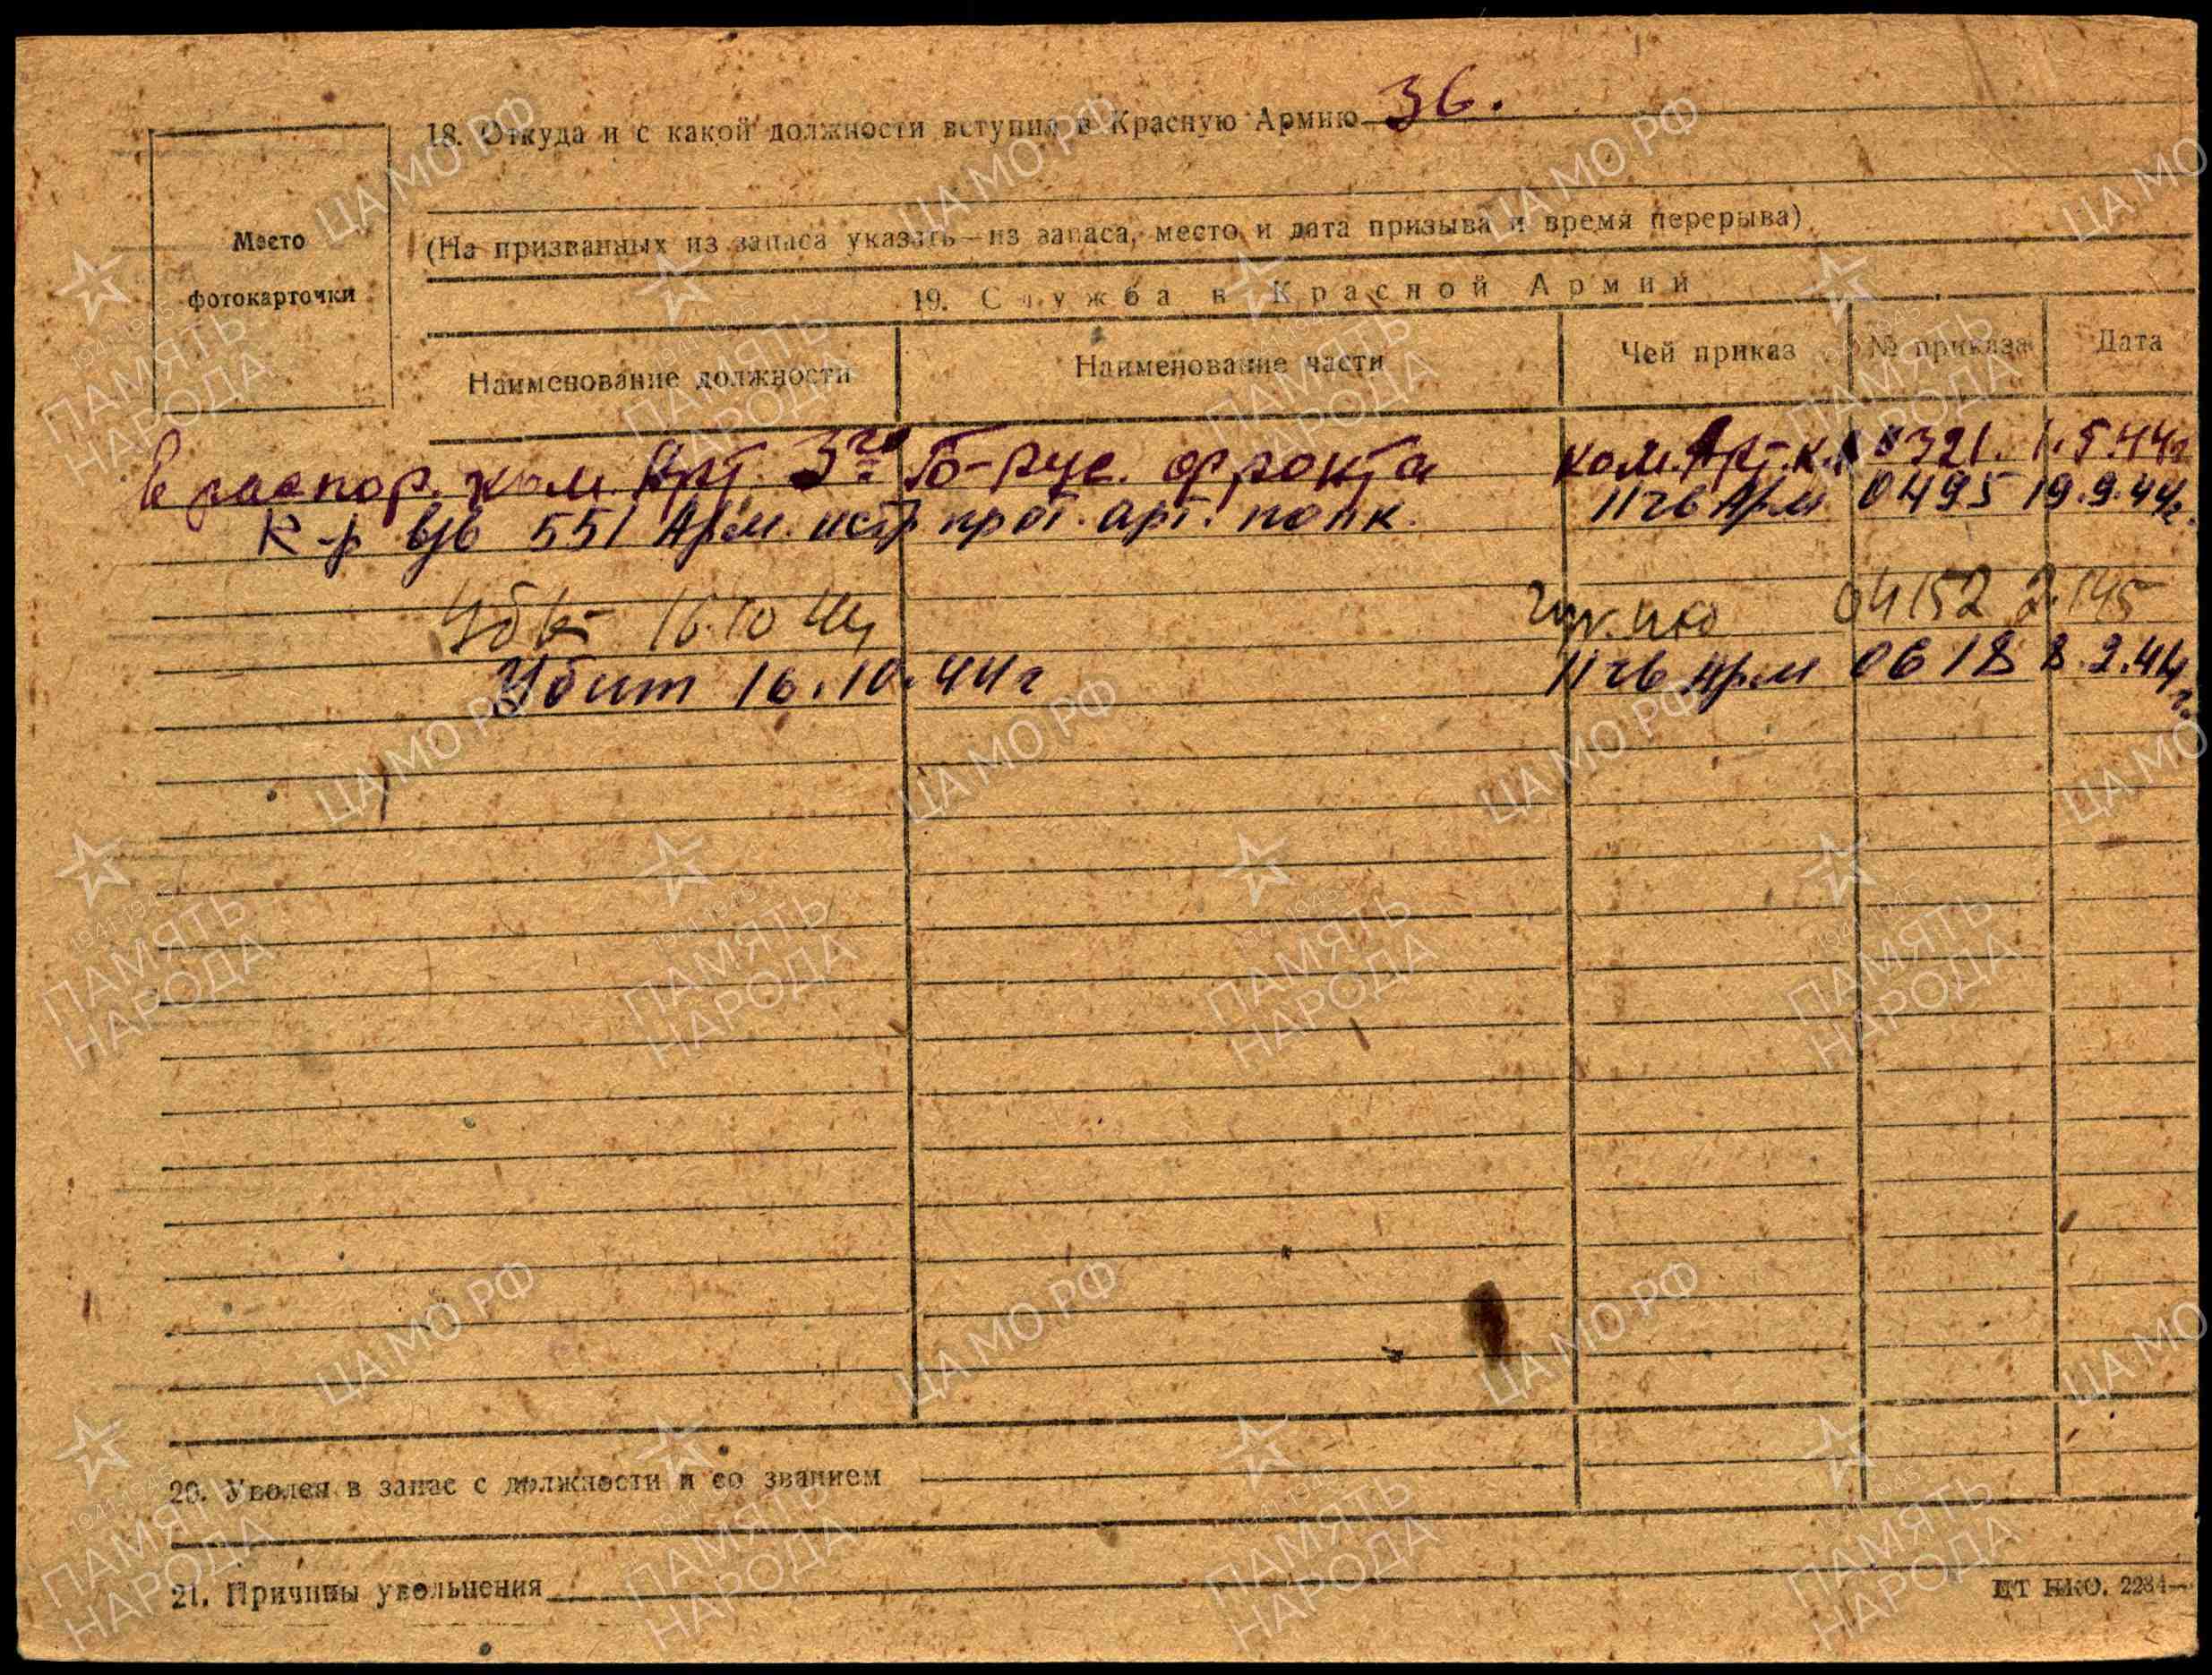 18. Откуда и с какой должности вступил в Красную Армию 36.
Место
фотокарточки
(На призванных из запаса указать—из запаса, место и дата призыва и время перерыва)
19. Служба в Красной Армии
Наименование должности Наименование части Чей приказ № приказа Дата
В распор. ком. Арт. 3го Б-Рус. фронта ком. Арт. 0321. 1.5.44г
К-р взв 551 Арм. истр прот. арт. полк. 11 гв Арм 0495 19.9.44г.
Убит 16.10 44 04152 2.1.45
Убит 16.10.44г 11 гв Арм 0618 8.2.44г.
20. Уволен в запас с должности и со званием
21. Причины увольнения
ЦТ НКО. 2284—
ЦА МО РФ
1941-1945
ПАМЯТЬ
НАРОДА